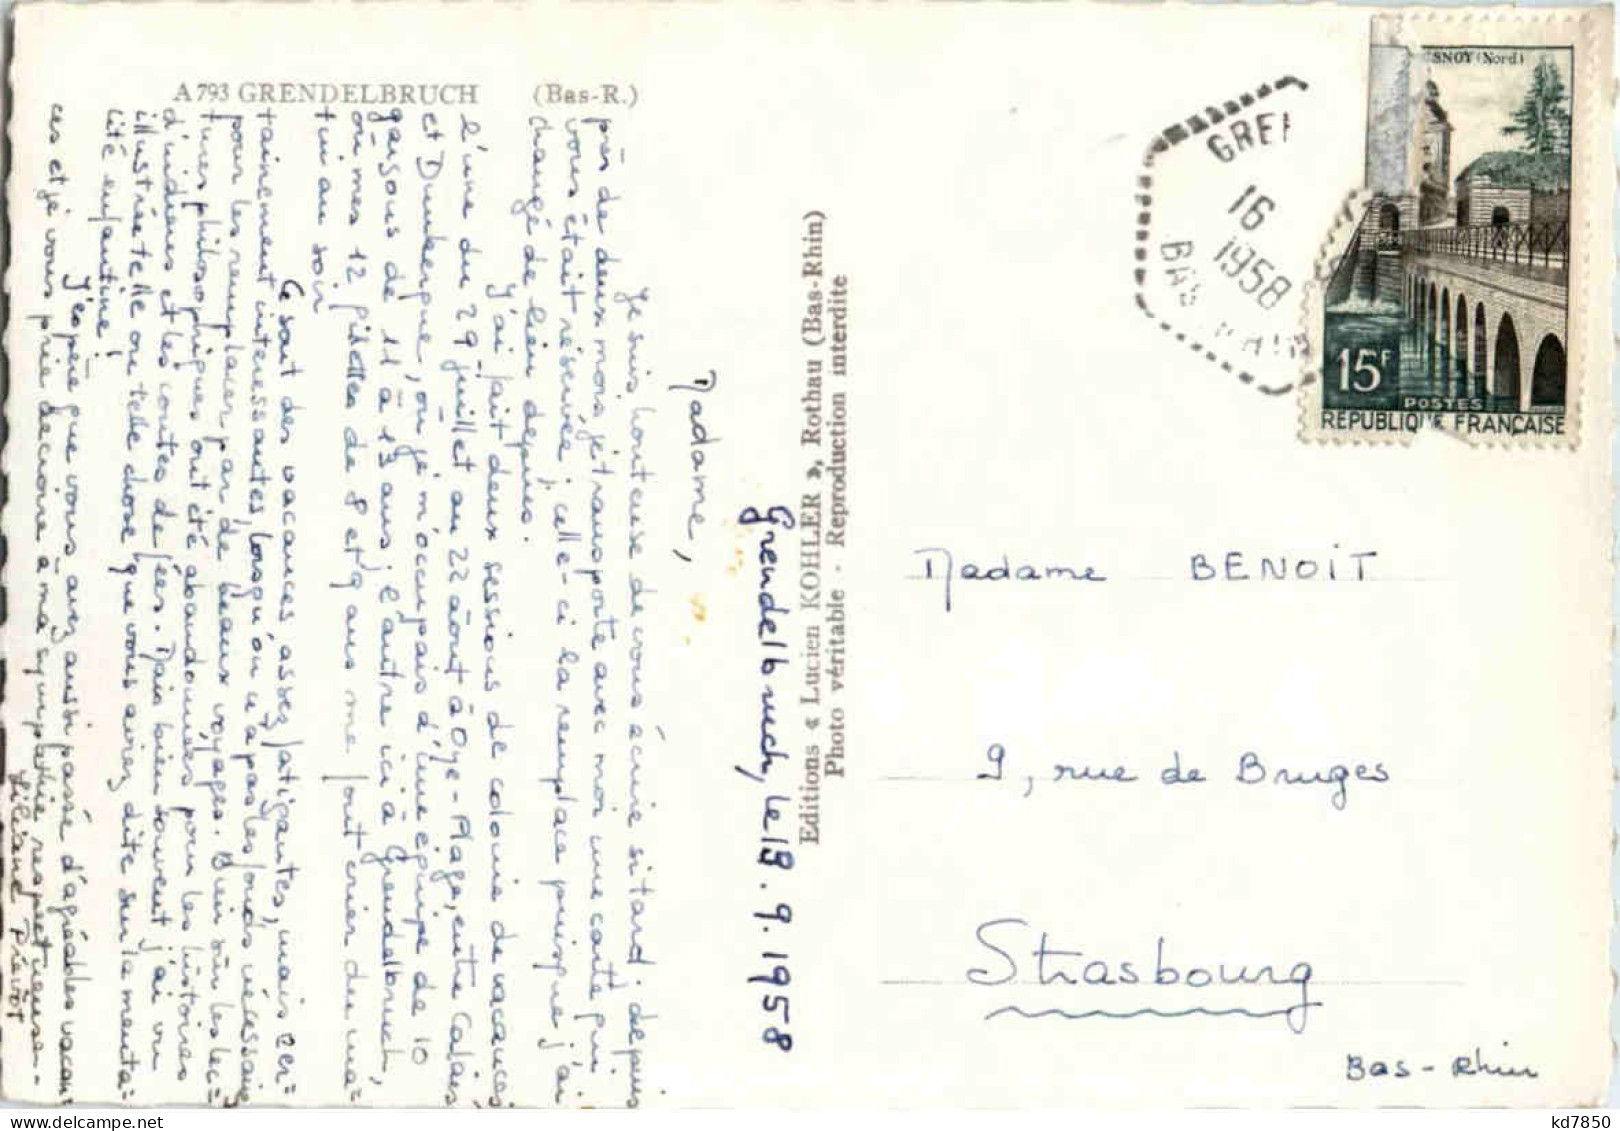 A 793 GRENDELBRUCH (Bas-R.)
Grendelbruch, le 19.9.1958
Madame,
Je suis honteuse de vous écrire si tard : depuis
près de deux mois, je transporte avec moi une carte qui
vous était réservée ; celle-ci la remplace puisque j'ai
changé de lieu depuis.
J'ai fait deux sessions de colonie de vacances
l'une du 29 juillet au 22 août à Oye-Plage, entre Calais
et Dunkerque, où je m'occupais d'une équipe de 10
garçons de 11 à 13 ans ; l'autre ici à Grendelbruch,
où mes 12 fillettes de 8 et 9 ans me font crier du ma=
tin au soir
Ce sont des vacances assez fatigantes, mais cer=
tainement intéressantes, lorsqu'on n'a pas les fonds nécessaires
pour les remplacer par de beaux voyages. Bien sûr les lec=
tures philosophiques ont été abandonnées pour les histoires
d'indiens et les contes de fées. Mais bien souvent j'ai vu
illustrée telle ou telle chose que vous aviez dite sur la menta=
lité enfantine !
J'espère que vous avez aussi passé d'agréables vacan=
ces et je vous prie de croire à ma sympathie respectueuse.-
Liliane Prévôt
Editions « Lucien KOHLER », Rothau (Bas-Rhin)
Photo véritable - Reproduction interdite
GREN
16
1958
BAS RHIN
SNOY (Nord)
15F
POSTES
REPUBLIQUE FRANÇAISE
Madame BENOIT
9, rue de Bruges
Strasbourg
Bas-Rhin
kd7850